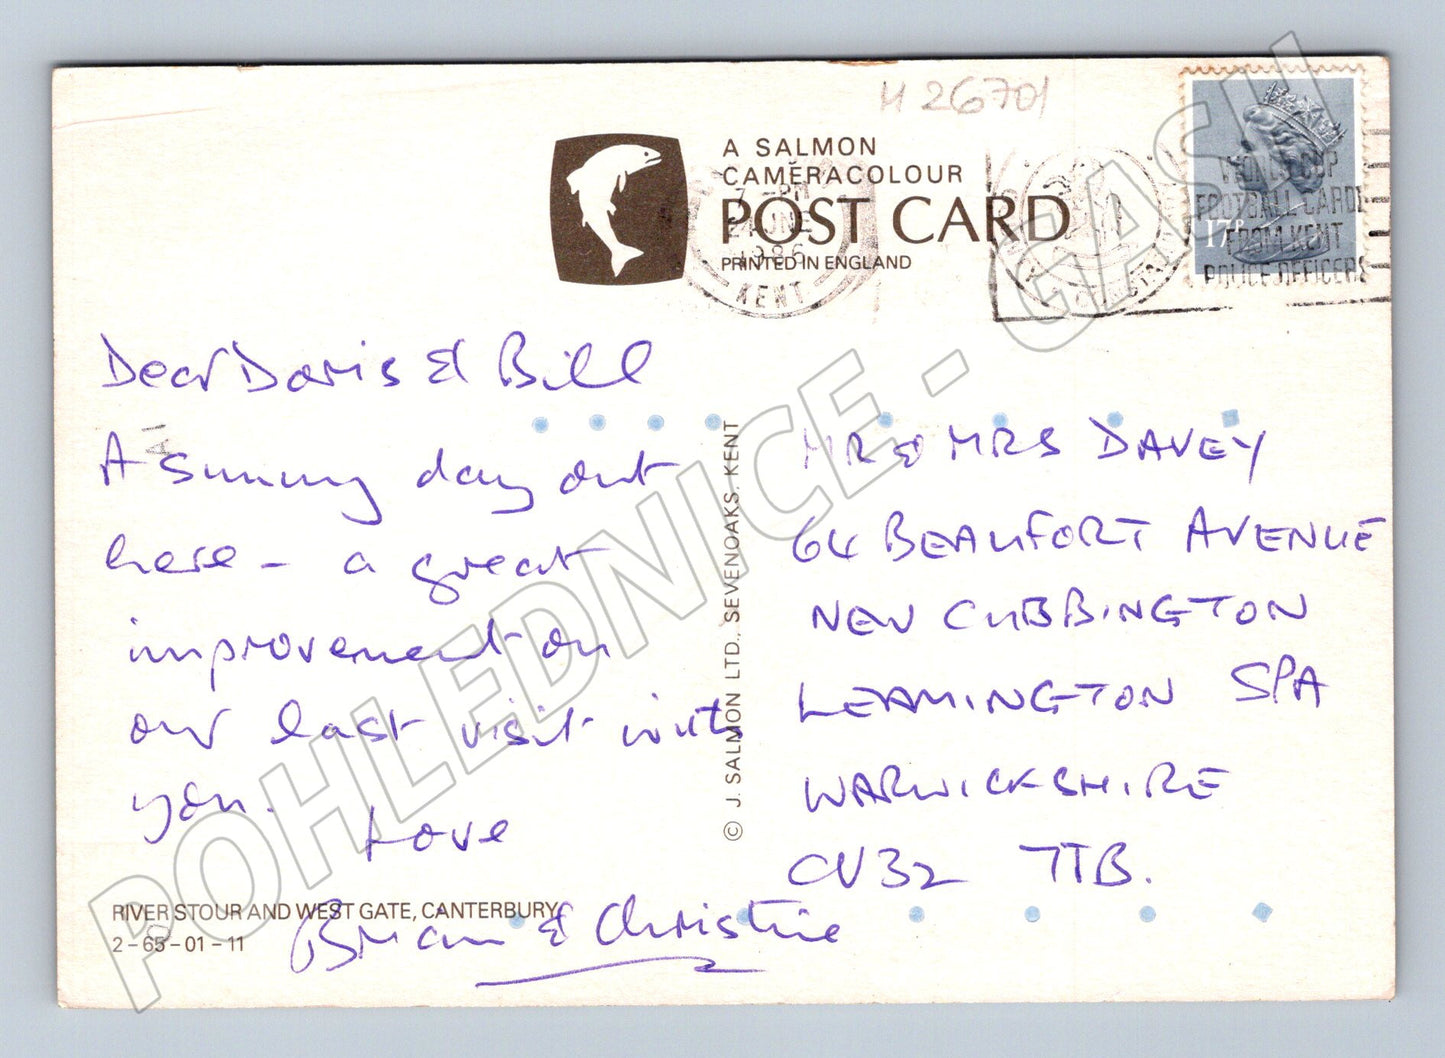 H 26701
A SALMON
CAMERACOLOUR
POST CARD
PRINTED IN ENGLAND
7-PM
JNE
1986
KENT
17P
WORLD CUP
FOOTBALL CARDS
FROM KENT
POLICE OFFICERS
Dear Doris & Bill
A sunny day out
here - a great
improvement on
our last visit with
you.
Love
Brian & Christine
© J. SALMON LTD., SEVENOAKS. KENT
MR & MRS DAVEY
64 BEAUFORT AVENUE
NEW CUBBINGTON
LEAMINGTON SPA
WARWICKSHIRE
CV32 7TB.
RIVER STOUR AND WEST GATE, CANTERBURY
2-65-01-11
POHLEDNICE - GASU